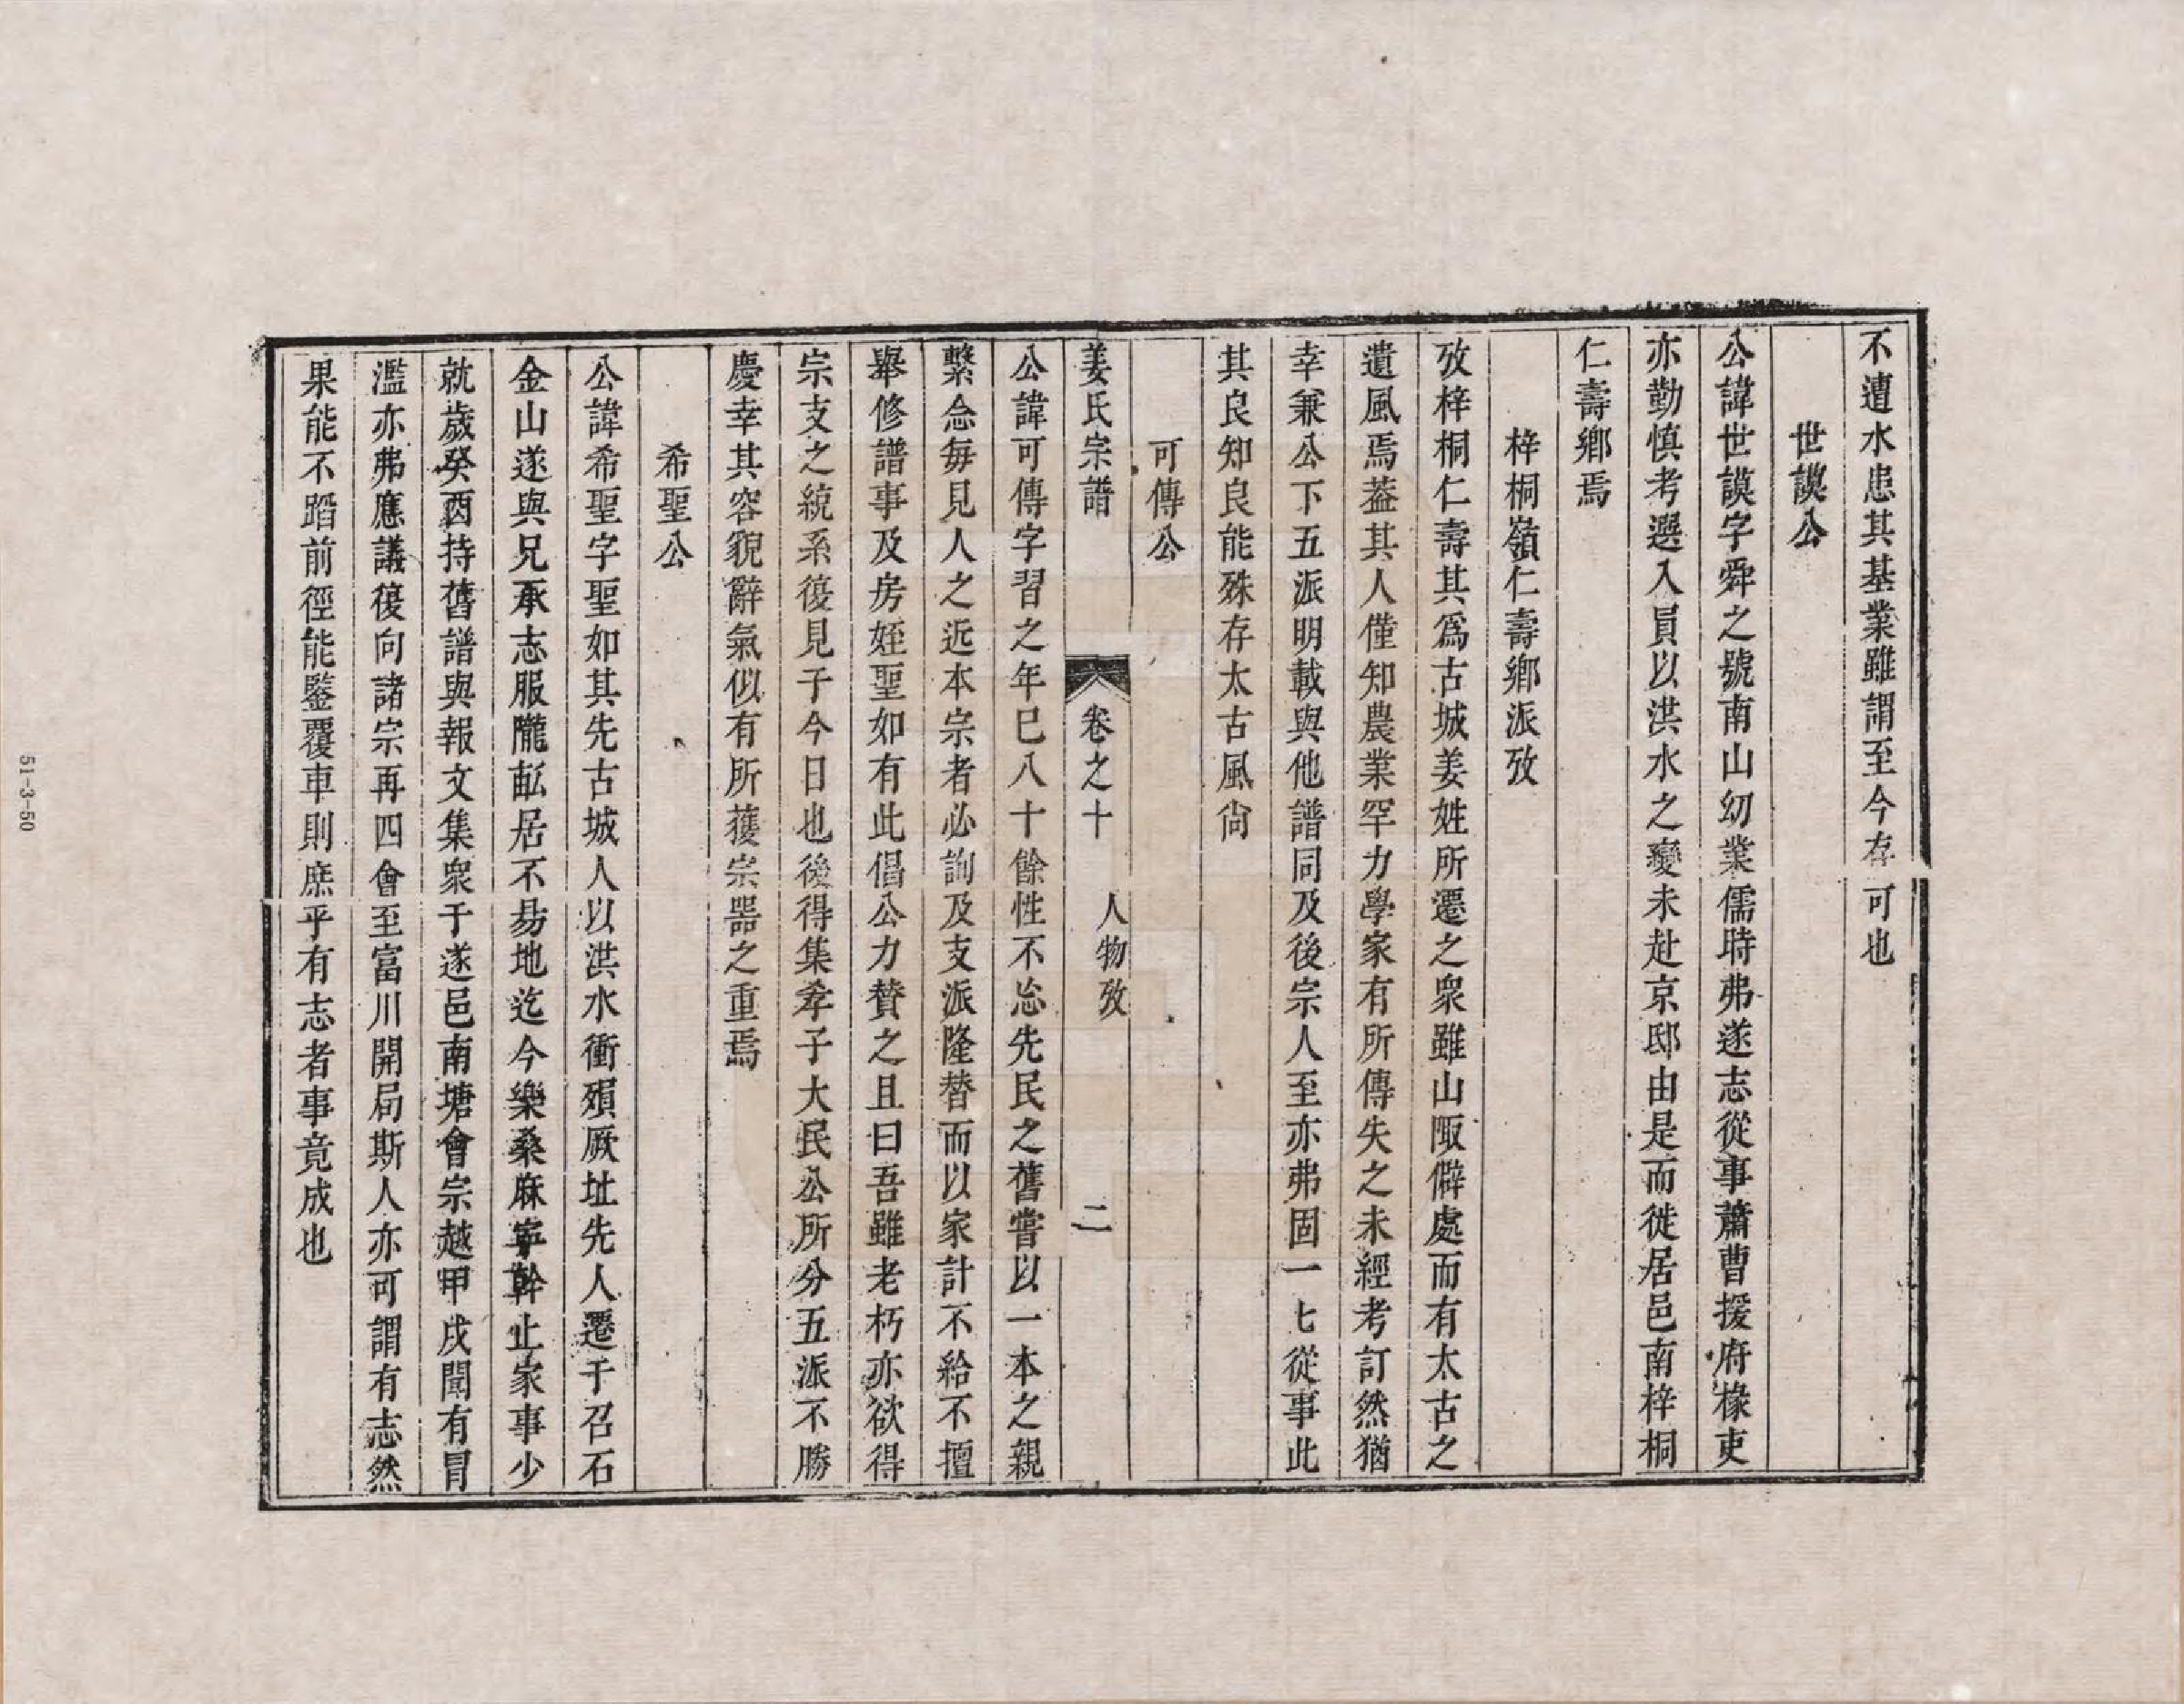 不遭水患其基業雖謂至今存可也
世謨公
公諱世謨字舜之號南山幼業儒時弗遂志從事蕭曹援府椽吏
亦勤慎考選入員以洪水之變未赴京邸由是而徙居邑南梓桐
仁壽鄉焉
梓桐嶺仁壽鄉派攷
攷梓桐仁壽其爲古城姜姓所遷之衆雖山陬僻處而有太古之
遺風焉葢其人僅知農業罕力學家有所傳失之未經考訂然猶
幸兼公下五派明載與他譜同及後宗人至亦弗固一七從事此
其良知良能殊存太古風尙
可傳公
姜氏宗譜 卷之十 人物攷 二
公諱可傳字習之年巳八十餘性不忩先民之舊嘗以一本之親
繫念每見人之近本宗者必詢及支派隆替而以家計不給不擅
舉修譜事及房姪聖如有此倡公力賛之且曰吾雖老朽亦欲得
宗支之統系復見于今日也後得集孝子大民公所分五派不勝
慶幸其容貌辭氣似有所獲宗器之重焉
希聖公
公諱希聖字聖如其先古城人以洪水衝殞厥址先人遷于召石
金山遂與兄承志服隴畝居不易地迄今樂桑麻寧幹止家事少
就歲癸酉持舊譜與報文集衆于遂邑南塘會宗越甲戌聞有冒
濫亦弗應議復向諸宗再四會至富川開局斯人亦可謂有志然
果能不蹈前徑能鑒覆車則庶乎有志者事竟成也
51-3-50